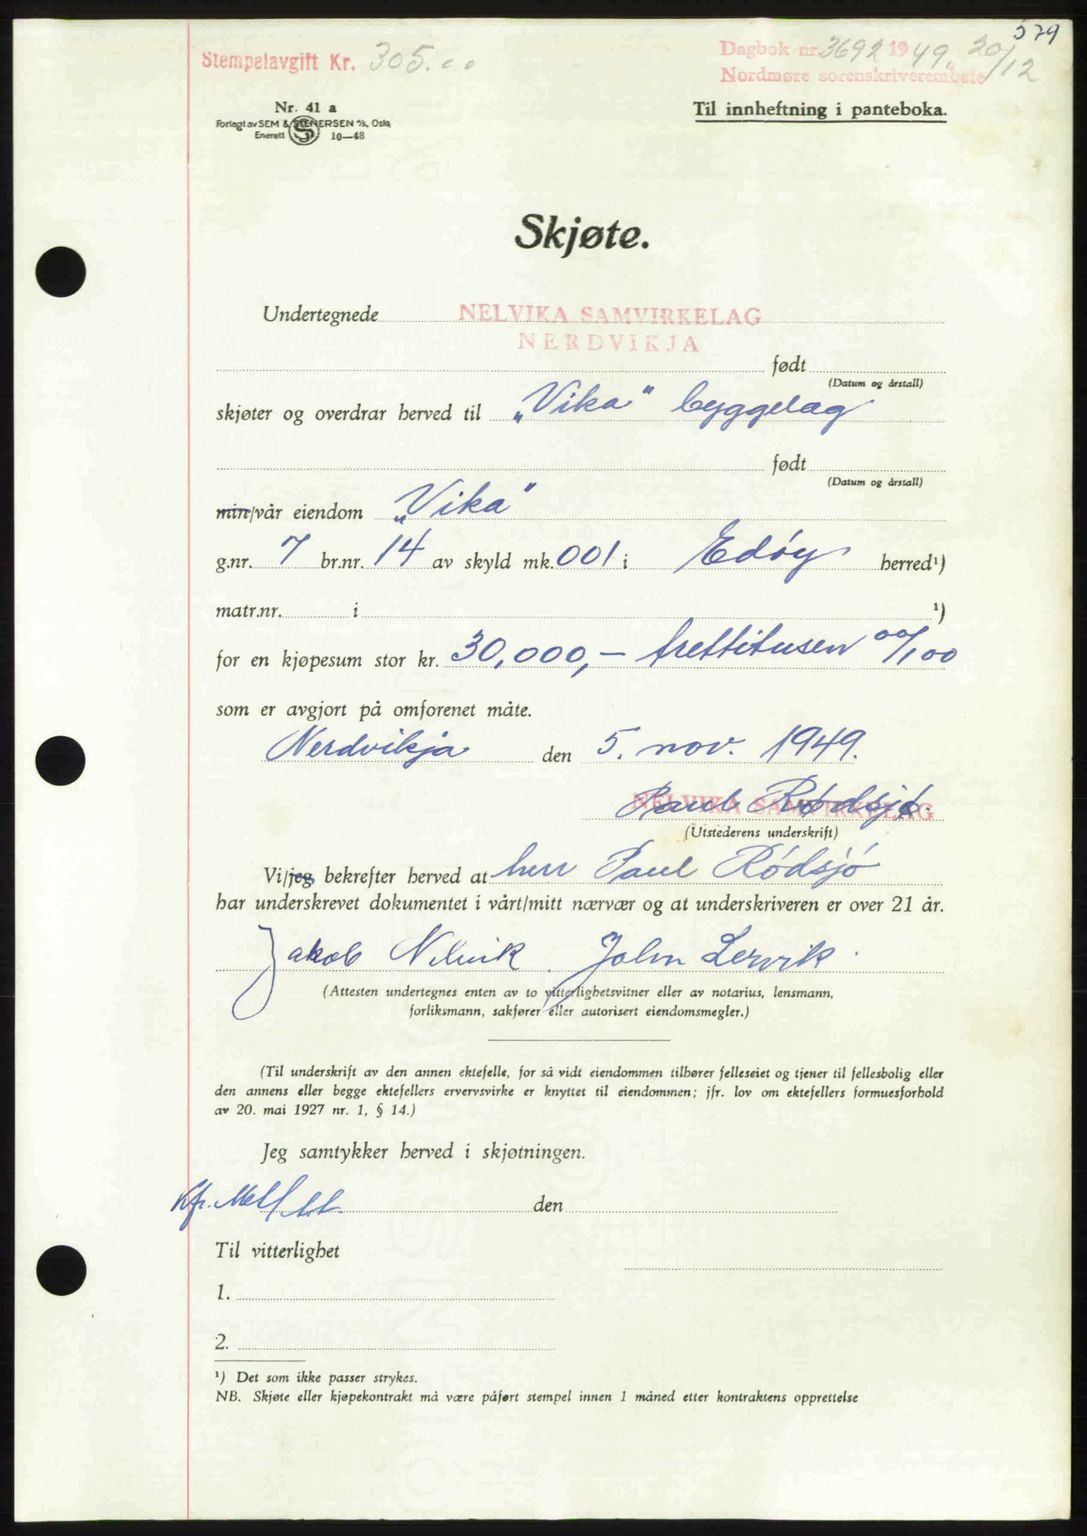 579
Stempelavgift Kr. 305.00
Dagbok nr. 3692 1949. 20/12
Nordmøre sorenskriverembete
Nr. 41 a
Forlagt av SEM & STENERSEN A/S, Oslo
Enerett S 10—48
Til innheftning i panteboka.
Skjøte.
Undertegnede NELVIKA SAMVIRKELAG
NERDVIKJA
født
(Datum og årstall)
skjøter og overdrar herved til „Vika" byggelag
født
(Datum og årstall)
min/vår eiendom „Vika"
g.nr. 7 br.nr. 14 av skyld mk. 001 i Edöy herred¹)
matr.nr. i ¹)
for en kjøpesum stor kr. 30,000,— trettitusen 00/100
som er avgjort på omforenet måte.
Nerdvikja den 5. nov. 1949.
NELVIKA SAMVIRKELAG
Paul Rødsjø.
(Utstederens underskrift)
Vi/jeg bekrefter herved at herr Paul Rödsjö
har underskrevet dokumentet i vårt/mitt nærvær og at underskriveren er over 21 år.
Jakob Nelvik. John Lervik.
(Attesten undertegnes enten av to vitterlighetsvitner eller av notarius, lensmann,
forliksmann, sakfører eller autorisert eiendomsmegler.)
(Til underskrift av den annen ektefelle, for så vidt eiendommen tilhører felleseiet og tjener til fellesbolig eller
den annens eller begge ektefellers ervervsvirke er knyttet til eiendommen; jfr. lov om ektefellers formuesforhold
av 20. mai 1927 nr. 1, § 14.)
Jeg samtykker herved i skjøtningen.
den
Til vitterlighet
1.
2.
¹) Det som ikke passer strykes.
NB. Skjøte eller kjøpekontrakt må være påført stempel innen 1 måned etter kontraktens opprettelse